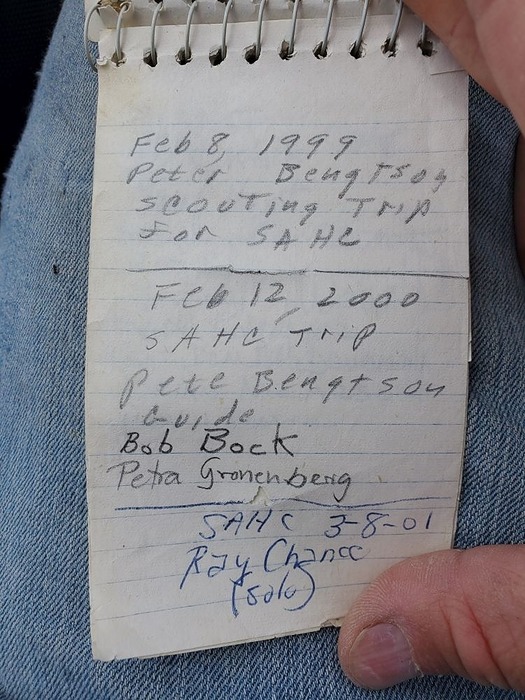 Feb 8, 1999
Peter Bengtson
scouting Trip
for SAHC
Feb 12, 2000
SAHC Trip
Pete Bengtson
Guide
Bob Bock
Petra Gronenberg
SAHC 3-8-01
Ray Chance
(solo)